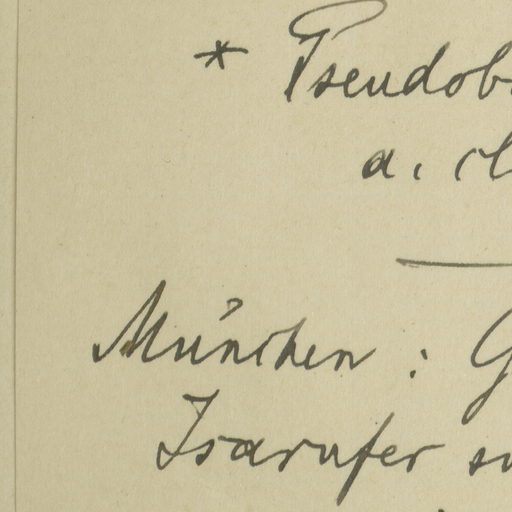 * Pseudob
a. cl
München : G
Isarufer su